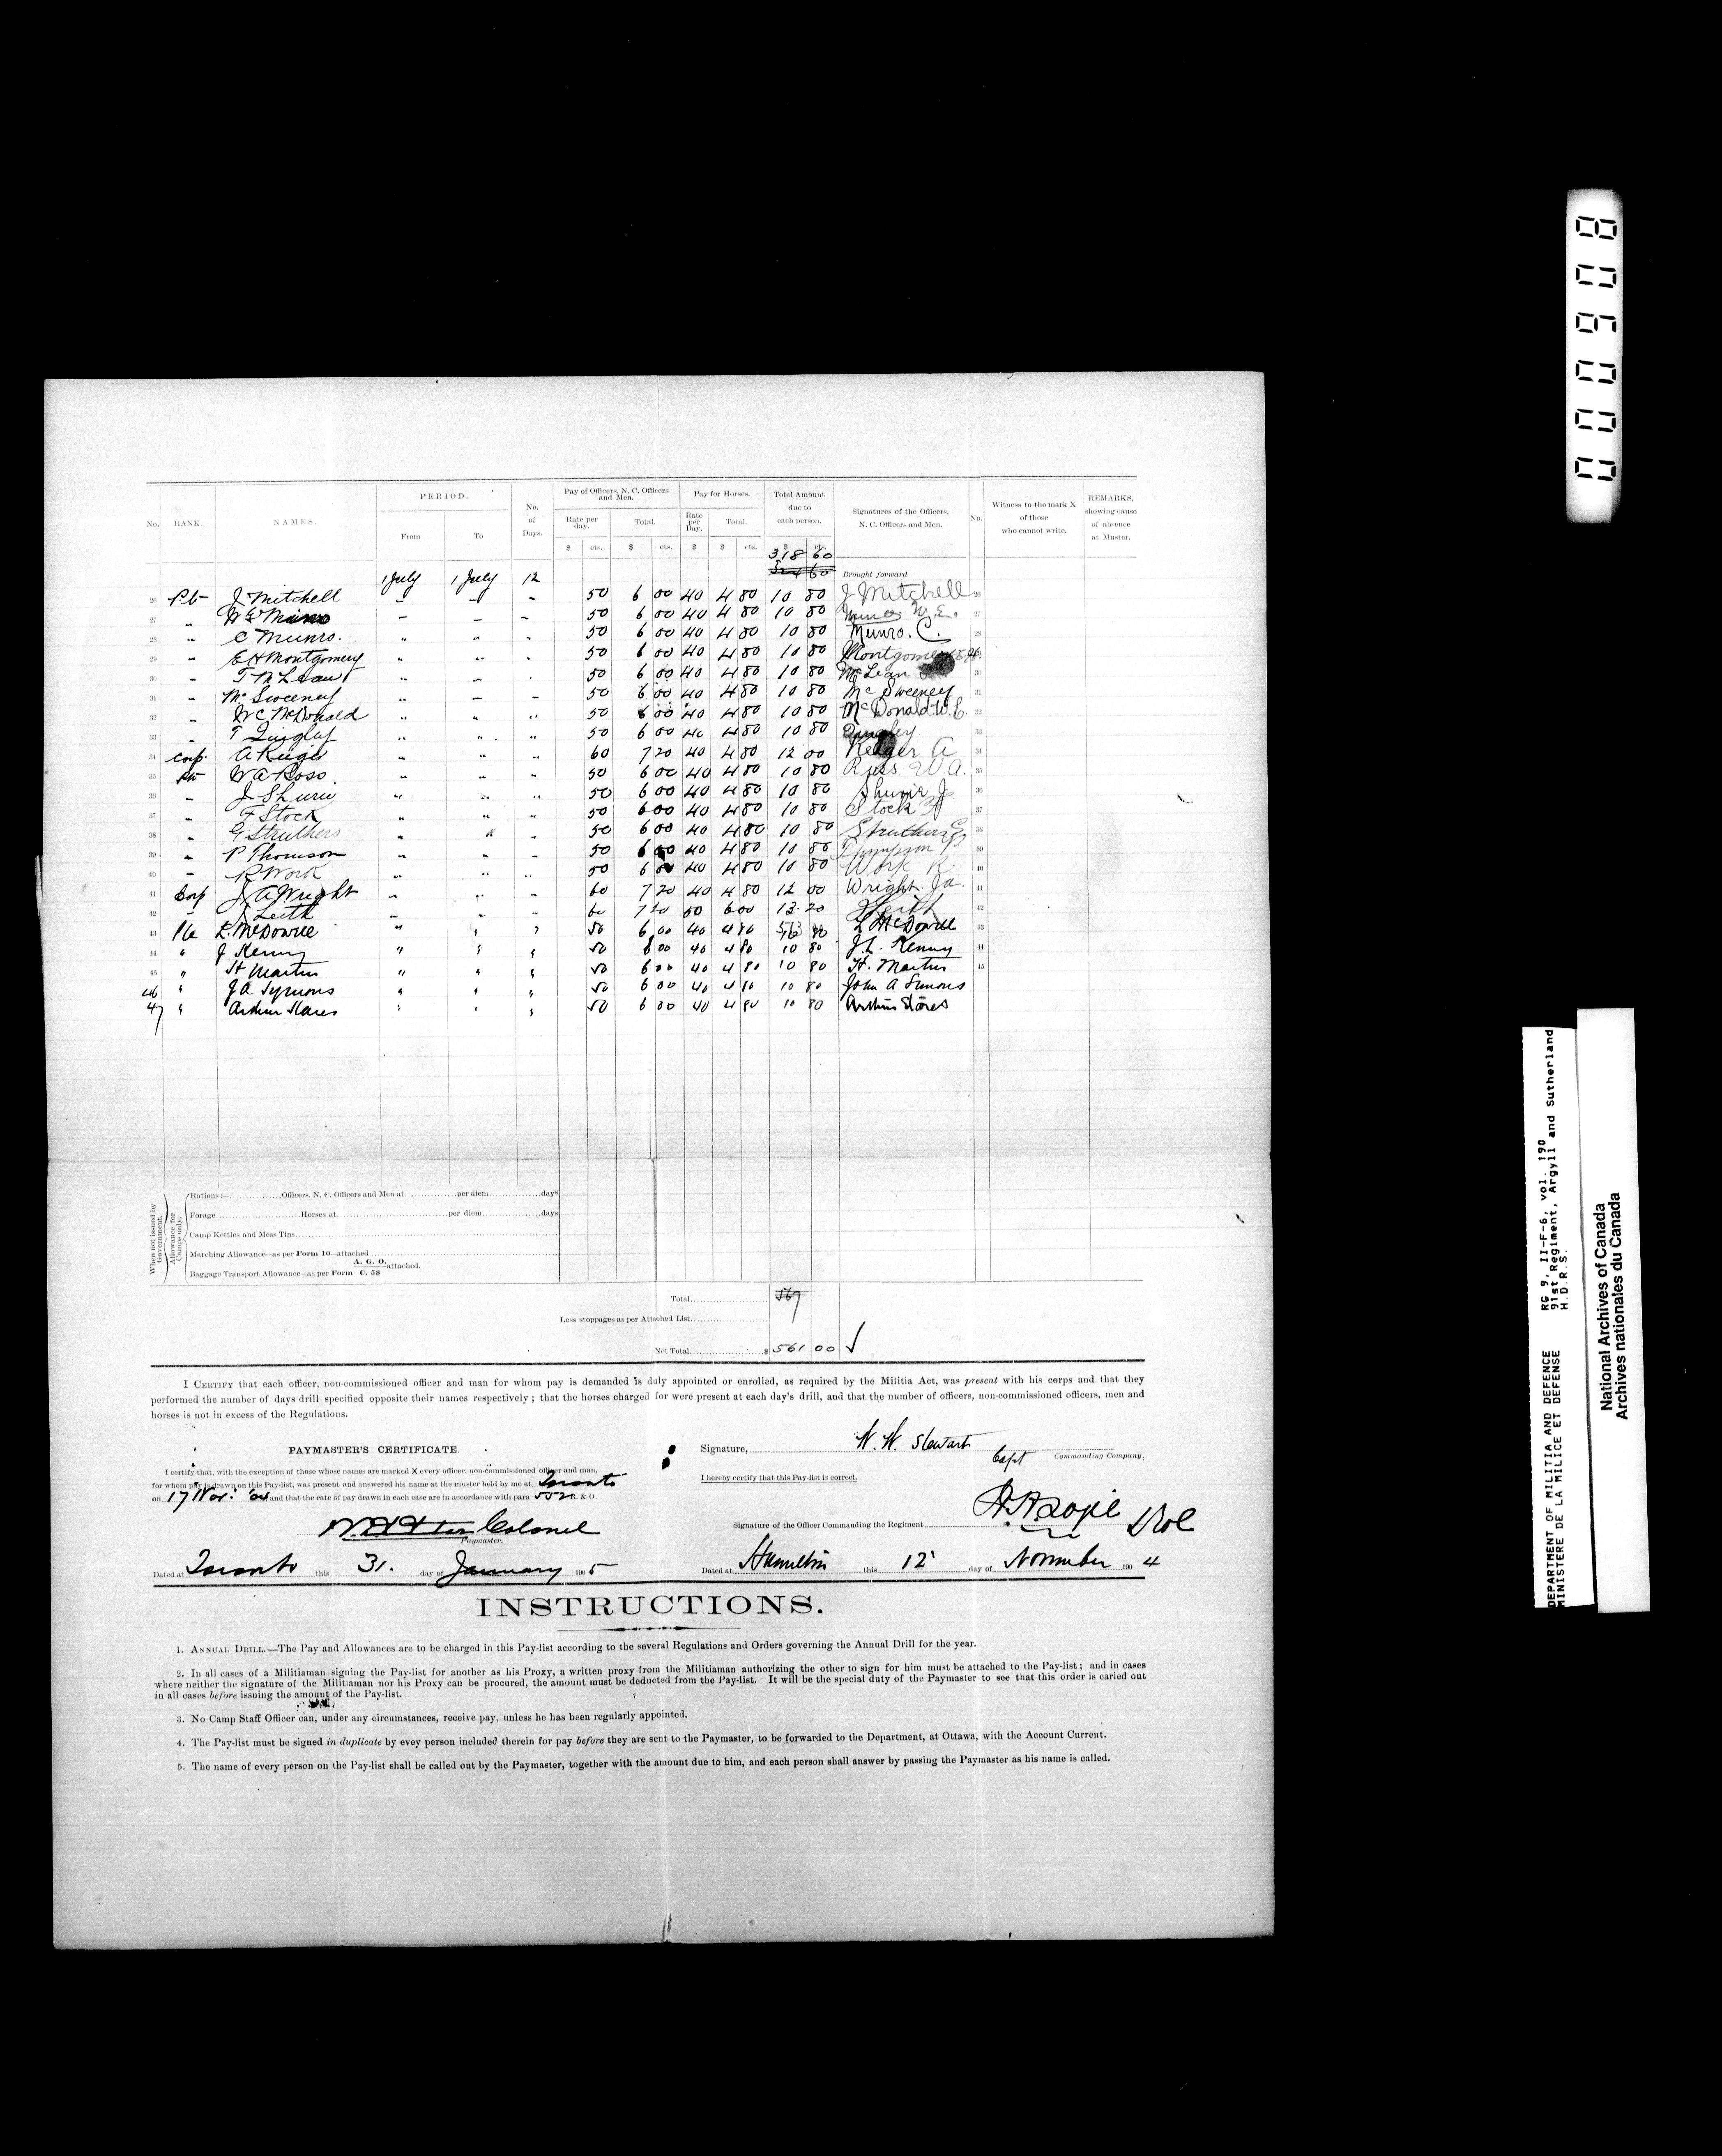 PERIOD.
No. RANK. NAMES. From To No. of Days.
Pay of Officers, N. C. Officers and Men. Rate per day. Total. $ cts. $ cts.
Pay for Horses. Rate per Day. Total. $ $ cts.
Total Amount due to each person. $ cts.
Signatures of the Officers, N. C. Officers and Men.
No.
Witness to the mark X of those who cannot write.
REMARKS, showing cause of absence at Muster.
318 60
324 60 Brought forward
1 July 1 July 12
26 Pte J. Mitchell " " " 50 6 00 40 4 80 10 80 J Mitchell 26
27 " W E Munro " " " 50 6 00 40 4 80 10 80 Munro W. E. 27
28 " C Munro. " " " 50 6 00 40 4 80 10 80 Munro. C. 28
29 " E H Montgomery " " " 50 6 00 40 4 80 10 80 Montgomery E. H. 29
30 " T McLean " " " 50 6 00 40 4 80 10 80 McLean 30
31 " Mc Sweeney " " " 50 6 00 40 4 80 10 80 Mc Sweeney 31
32 " W C McDonald " " " 50 6 00 40 4 80 10 80 McDonald W. C. 32
33 " T Quigley " " " 50 6 00 40 4 80 10 80 Quigley 33
34 Corp. A " " " 60 7 20 40 4 80 12 00 A 34
35 Pte W A Ross " " " 50 6 00 40 4 80 10 80 Ross W A. 35
36 " J Shurie " " " 50 6 00 40 4 80 10 80 Shurie J. 36
37 " F Stock " " " 50 6 00 40 4 80 10 80 Stock F 37
38 " G Struthers " " " 50 6 00 40 4 80 10 80 Struthers G 38
39 " P Thomson " " " 50 6 00 40 4 80 10 80 Thompson P 39
40 " R Work " " " 50 6 00 40 4 80 10 80 Work R. 40
41 Corp J A Wright " " " 60 7 20 40 4 80 12 00 Wright. J a. 41
42 " J Leith " " " 60 7 20 50 6 00 13 20 J Leith 42
43 Pte L. McDowell " " " 50 6 00 40 4 80 10 80 L McDowell 43
44 " J Kenny " " " 50 6 00 40 4 80 10 80 J. L. Kenny 44
45 " H Martin " " " 50 6 00 40 4 80 10 80 H. Martin 45
46 " J A Symons " " " 50 6 00 40 4 80 10 80 John A Simons
47 " Arthur Stares " " " 50 6 00 40 4 80 10 80 Arthur Stares
When not issued by Government. Allowance for Camps only.
Rations:— Officers, N. C. Officers and Men at per diem days
Forage Horses at per diem days
Camp Kettles and Mess Tins
Marching Allowance—as per Form 10—attached
Baggage Transport Allowance—as per Form A. G. O. C. 58 attached.
Total 567
Less stoppages as per Attached List
Net Total $ 561 00 √
I CERTIFY that each officer, non-commissioned officer and man for whom pay is demanded is duly appointed or enrolled, as required by the Militia Act, was present with his corps and that they
performed the number of days drill specified opposite their names respectively; that the horses charged for were present at each day's drill, and that the number of officers, non-commissioned officers, men and
horses is not in excess of the Regulations.
PAYMASTER'S CERTIFICATE.
I certify that, with the exception of those whose names are marked X every officer, non-commissioned officer and man,
for whom pay is drawn on this Pay-list, was present and answered his name at the muster held by me at Toronto
on 17 Nov. '04 and that the rate of pay drawn in each case are in accordance with para 552 R. & O.
Colonel
Paymaster.
Dated at Toronto this 31. day of January 1905
Signature, W. W. Stewart
Capt Commanding Company.
I hereby certify that this Pay-list is correct.
Signature of the Officer Commanding the Regiment
Dated at Hamilton this 12 day of November 1904
INSTRUCTIONS.
1. ANNUAL DRILL.—The Pay and Allowances are to be charged in this Pay-list according to the several Regulations and Orders governing the Annual Drill for the year.
2. In all cases of a Militiaman signing the Pay-list for another as his Proxy, a written proxy from the Militiaman authorizing the other to sign for him must be attached to the Pay-list; and in cases
where neither the signature of the Militiaman nor his Proxy can be procured, the amount must be deducted from the Pay-list. It will be the special duty of the Paymaster to see that this order is caried out
in all cases before issuing the amount of the Pay-list.
3. No Camp Staff Officer can, under any circumstances, receive pay, unless he has been regularly appointed.
4. The Pay-list must be signed in duplicate by evey person included therein for pay before they are sent to the Paymaster, to be forwarded to the Department, at Ottawa, with the Account Current.
5. The name of every person on the Pay-list shall be called out by the Paymaster, together with the amount due to him, and each person shall answer by passing the Paymaster as his name is called.
000908
DEPARTMENT OF MILITIA AND DEFENCE
MINISTERE DE LA MILICE ET DEFENSE
RG 9, II-F-6, vol. 190
91st Regiment, Argyll and Sutherland
H.D.R.S.
National Archives of Canada
Archives nationales du Canada